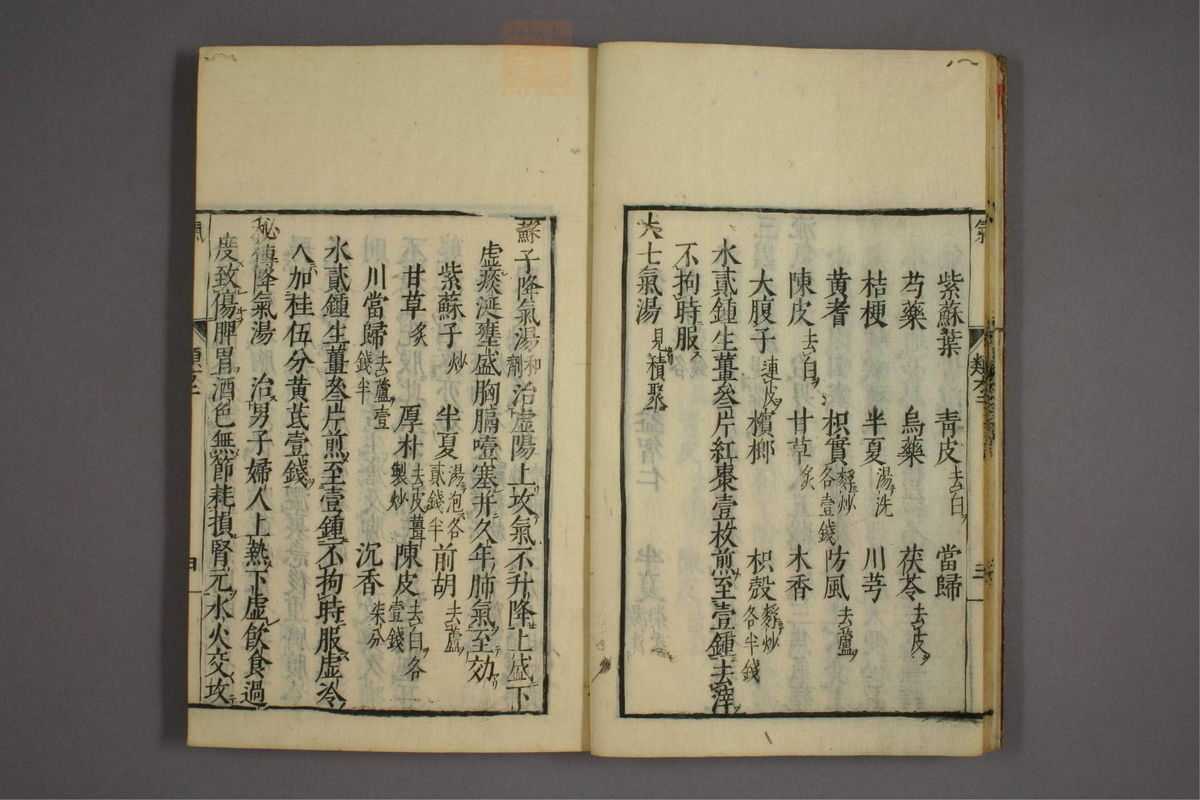 紫蘇葉 靑皮去白 當歸
芍藥 烏藥 茯苓去皮
桔梗 半夏湯洗 川芎
黄耆 枳實麩炒各壹錢 防風去蘆
陳皮去白 甘草炙 木香
大腹子連皮 檳榔 枳殼麩炒各半錢
水貳鍾生薑叄片紅棗壹枚煎至壹鍾去滓
不拘時服
大七氣湯見積聚
蘇子降氣湯和劑治虚陽上攻氣不升降上盛下
虚痰涎壅盛胸膈噎塞并久年肺氣至効
紫蘇子炒 半夏湯泡各貳錢半 前胡去蘆
甘草炙 厚朴去皮薑製炒 陳皮去白各壹錢
川當歸去蘆壹錢半 沉香柒分
水貳鍾生薑叄片煎至壹鍾不拘時服虚冷
人加桂伍分黄芪壹錢
秘傳降氣湯 治男子婦人上熱下虚飮食過
度致傷脾胃酒色無節耗損腎元水火交攻